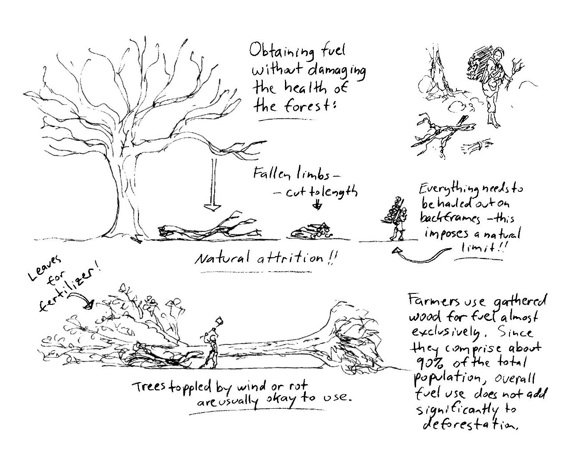 Obtaining fuel
without damaging
the health of
the forest:
Fallen limbs –
– cut to length
Everything needs to
be hauled out on
backframes – this
imposes a natural
limit!!
Natural attrition!!
Leaves
for
fertilizer!
Trees toppled by wind or rot
are usually okay to use.
Farmers use gathered
wood for fuel almost
exclusively. Since
they comprise about
90% of the total
population, overall
fuel use does not add
significantly to
deforestation.